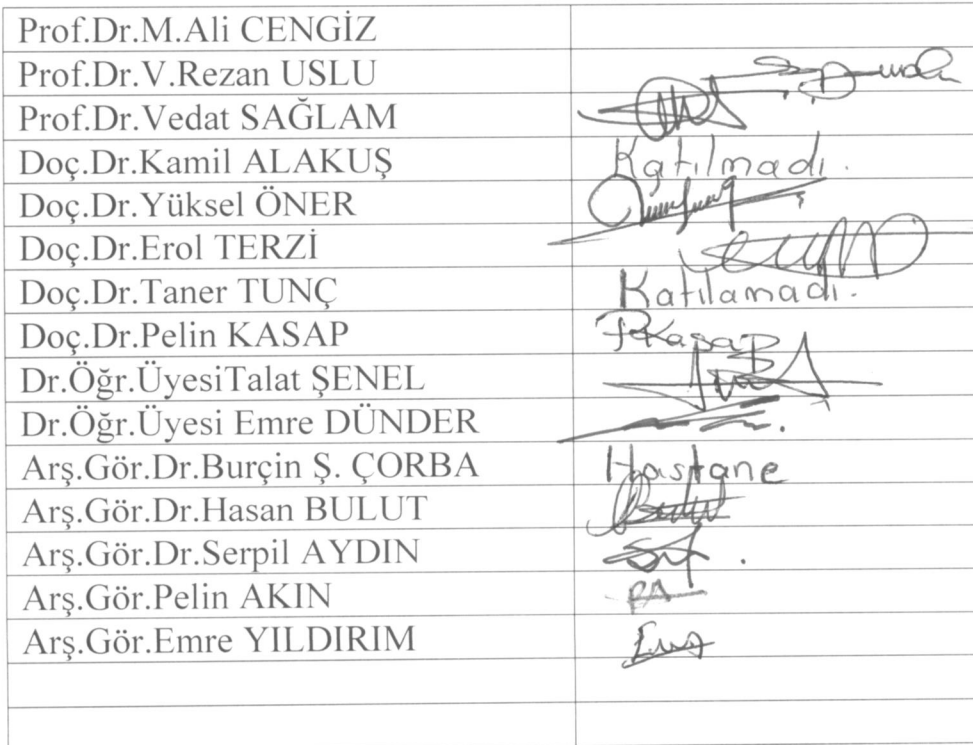 Prof.Dr.M.Ali CENGİZ
Prof.Dr.V.Rezan USLU
Prof.Dr.Vedat SAĞLAM
Doç.Dr.Kamil ALAKUŞ Katılmadı.
Doç.Dr.Yüksel ÖNER
Doç.Dr.Erol TERZİ
Doç.Dr.Taner TUNÇ Katılamadı.
Doç.Dr.Pelin KASAP PKasap
Dr.Öğr.ÜyesiTalat ŞENEL
Dr.Öğr.Üyesi Emre DÜNDER
Arş.Gör.Dr.Burçin Ş. ÇORBA Hastane
Arş.Gör.Dr.Hasan BULUT
Arş.Gör.Dr.Serpil AYDIN
Arş.Gör.Pelin AKIN PA
Arş.Gör.Emre YILDIRIM